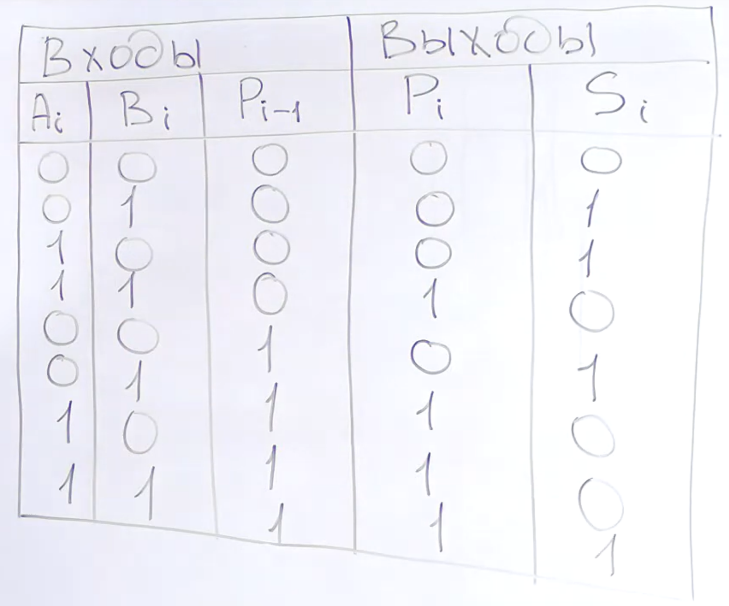 Входы Выходы
Ai Bi Pi-1 Pi Si
0 0 0 0 0
0 1 0 0 1
1 0 0 0 1
1 1 0 1 0
0 0 1 0 1
0 1 1 1 0
1 0 1 1 0
1 1 1 1 1